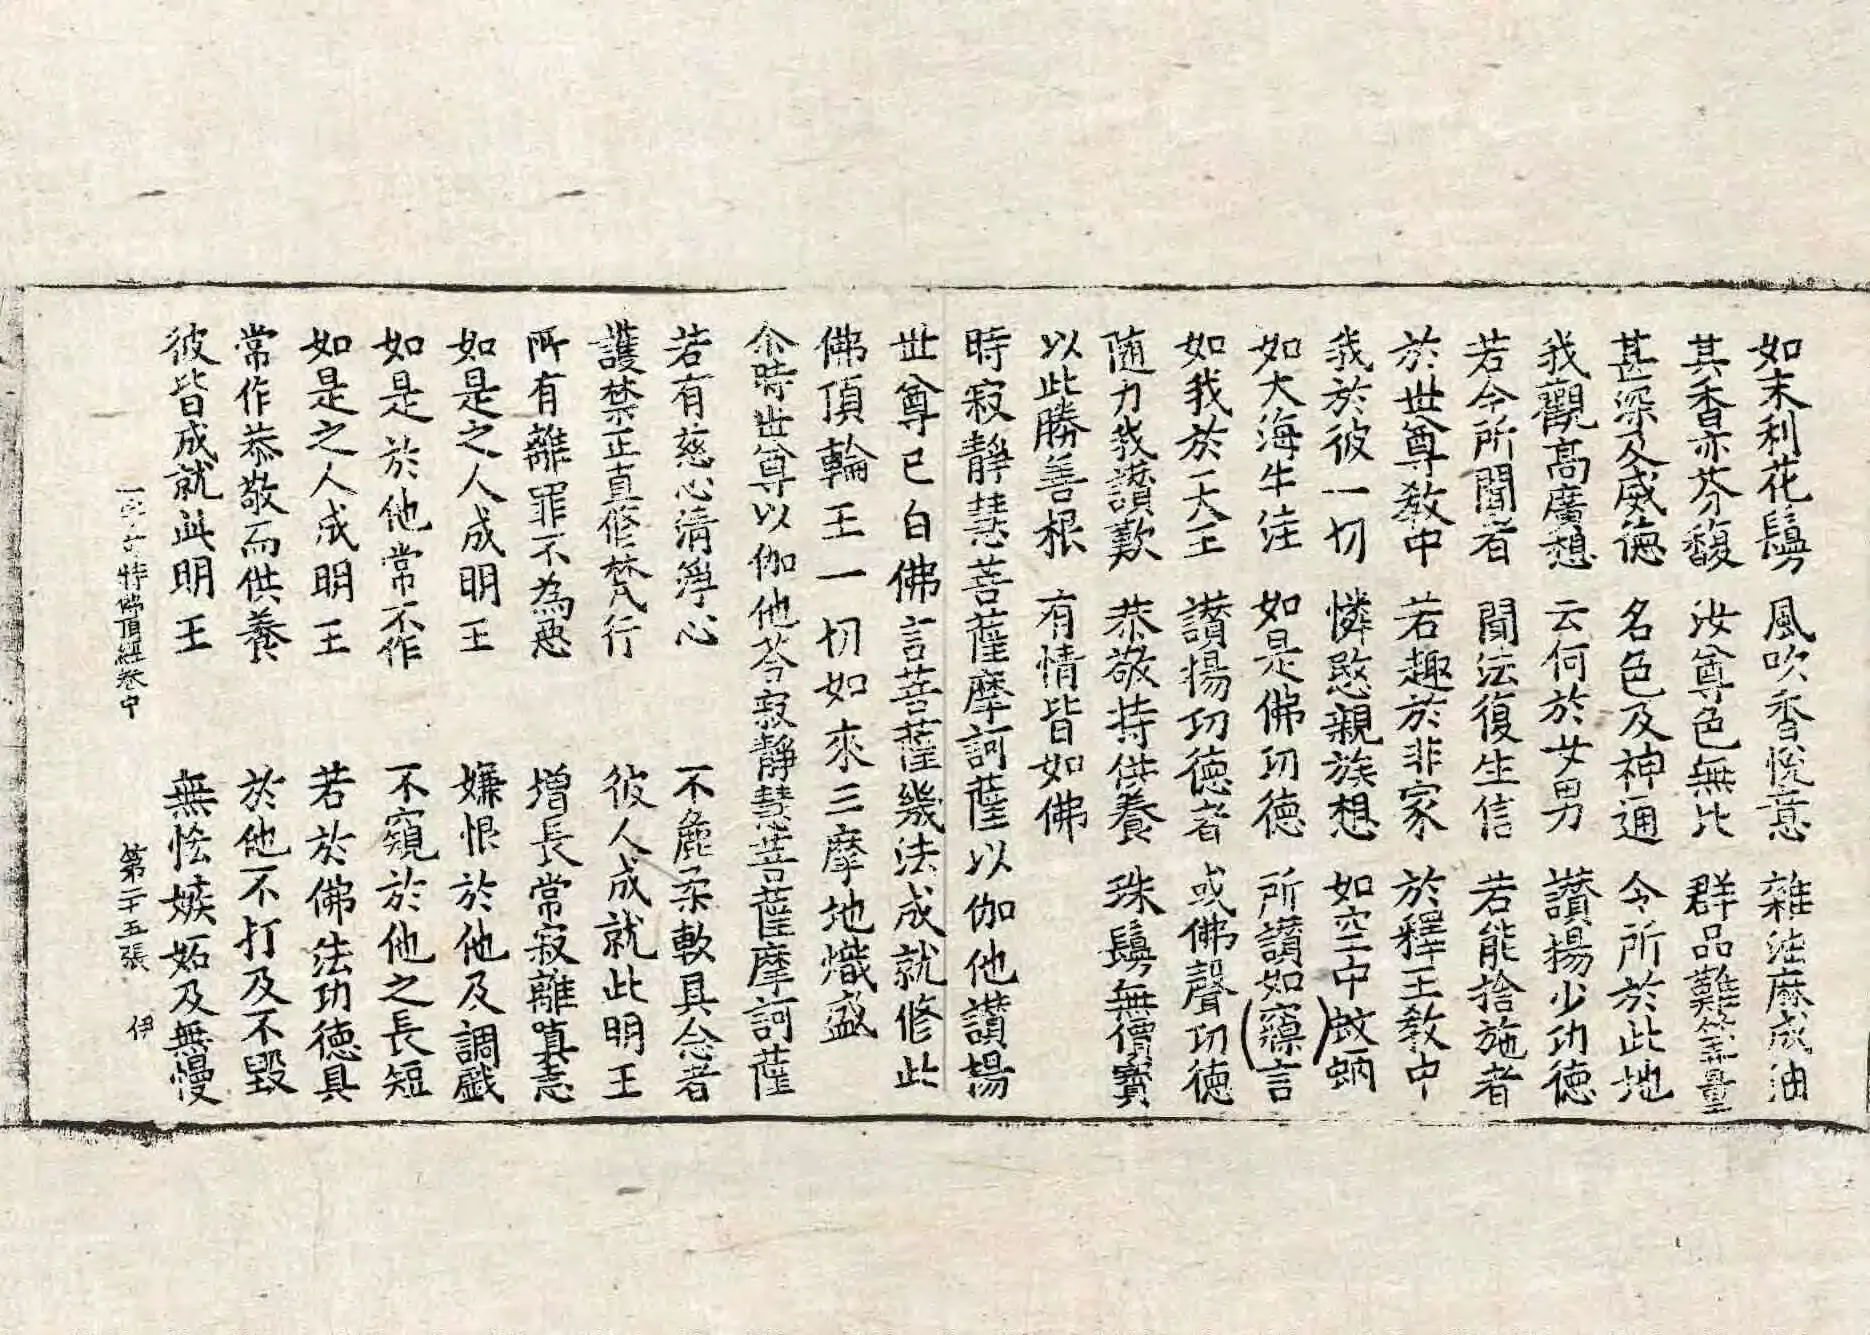 如末利花鬘 風吹香悅意 雜法麻成油
其香亦芬馥 汝尊色無比 群品難筭量
甚深久威德 名色及神通 令所於此地
我觀高廣想 云何於女男 讃揚少功德
若今所聞者 聞法復生信 若能捨施者
於世尊教中 若趣於非家 於釋王教中
我於彼一切 憐愍親族想 如空中蚊蚋
如大海牛注 如是佛功德 所讃如(寱)言
如我於一大王 讃揚功德者 或佛聲功德
随力我讃歎 恭敬持供養 珠鬘無價寶
以此勝善根 有情皆如佛
時寂靜慧菩薩摩訶薩以伽他讃揚
世尊已白佛言菩薩幾法成就修此
佛頂輪王一切如來三摩地熾盛
尒時世尊以伽他荅寂靜慧菩薩摩訶薩
若有慈心清淨心 不麁柔軟具念者
護禁正真修梵行 彼人成就此明王
所有離罪不為惡 增長常寂離嗔恚
如是之人成明王 嫌恨於他及調戲
如是於他常不作 不窺於他之長短
如是之人成明王 若於佛法功德具
常作恭敬而供養 於他不打及不毀
彼皆成就此明王 無恡嫉妬及無慢
一字奇特佛頂經卷中 第二十五張 伊